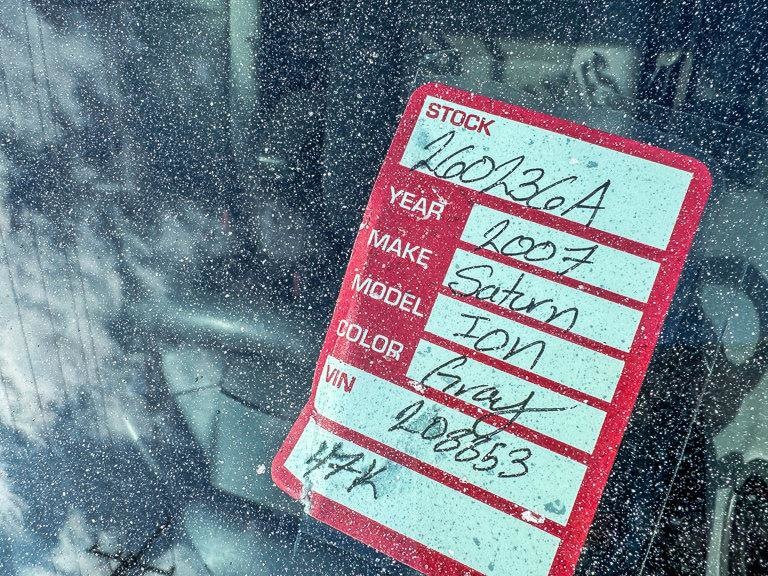 STOCK
260236A
YEAR 2007
MAKE Saturn
MODEL Ion
COLOR Gray
VIN 208653
47K